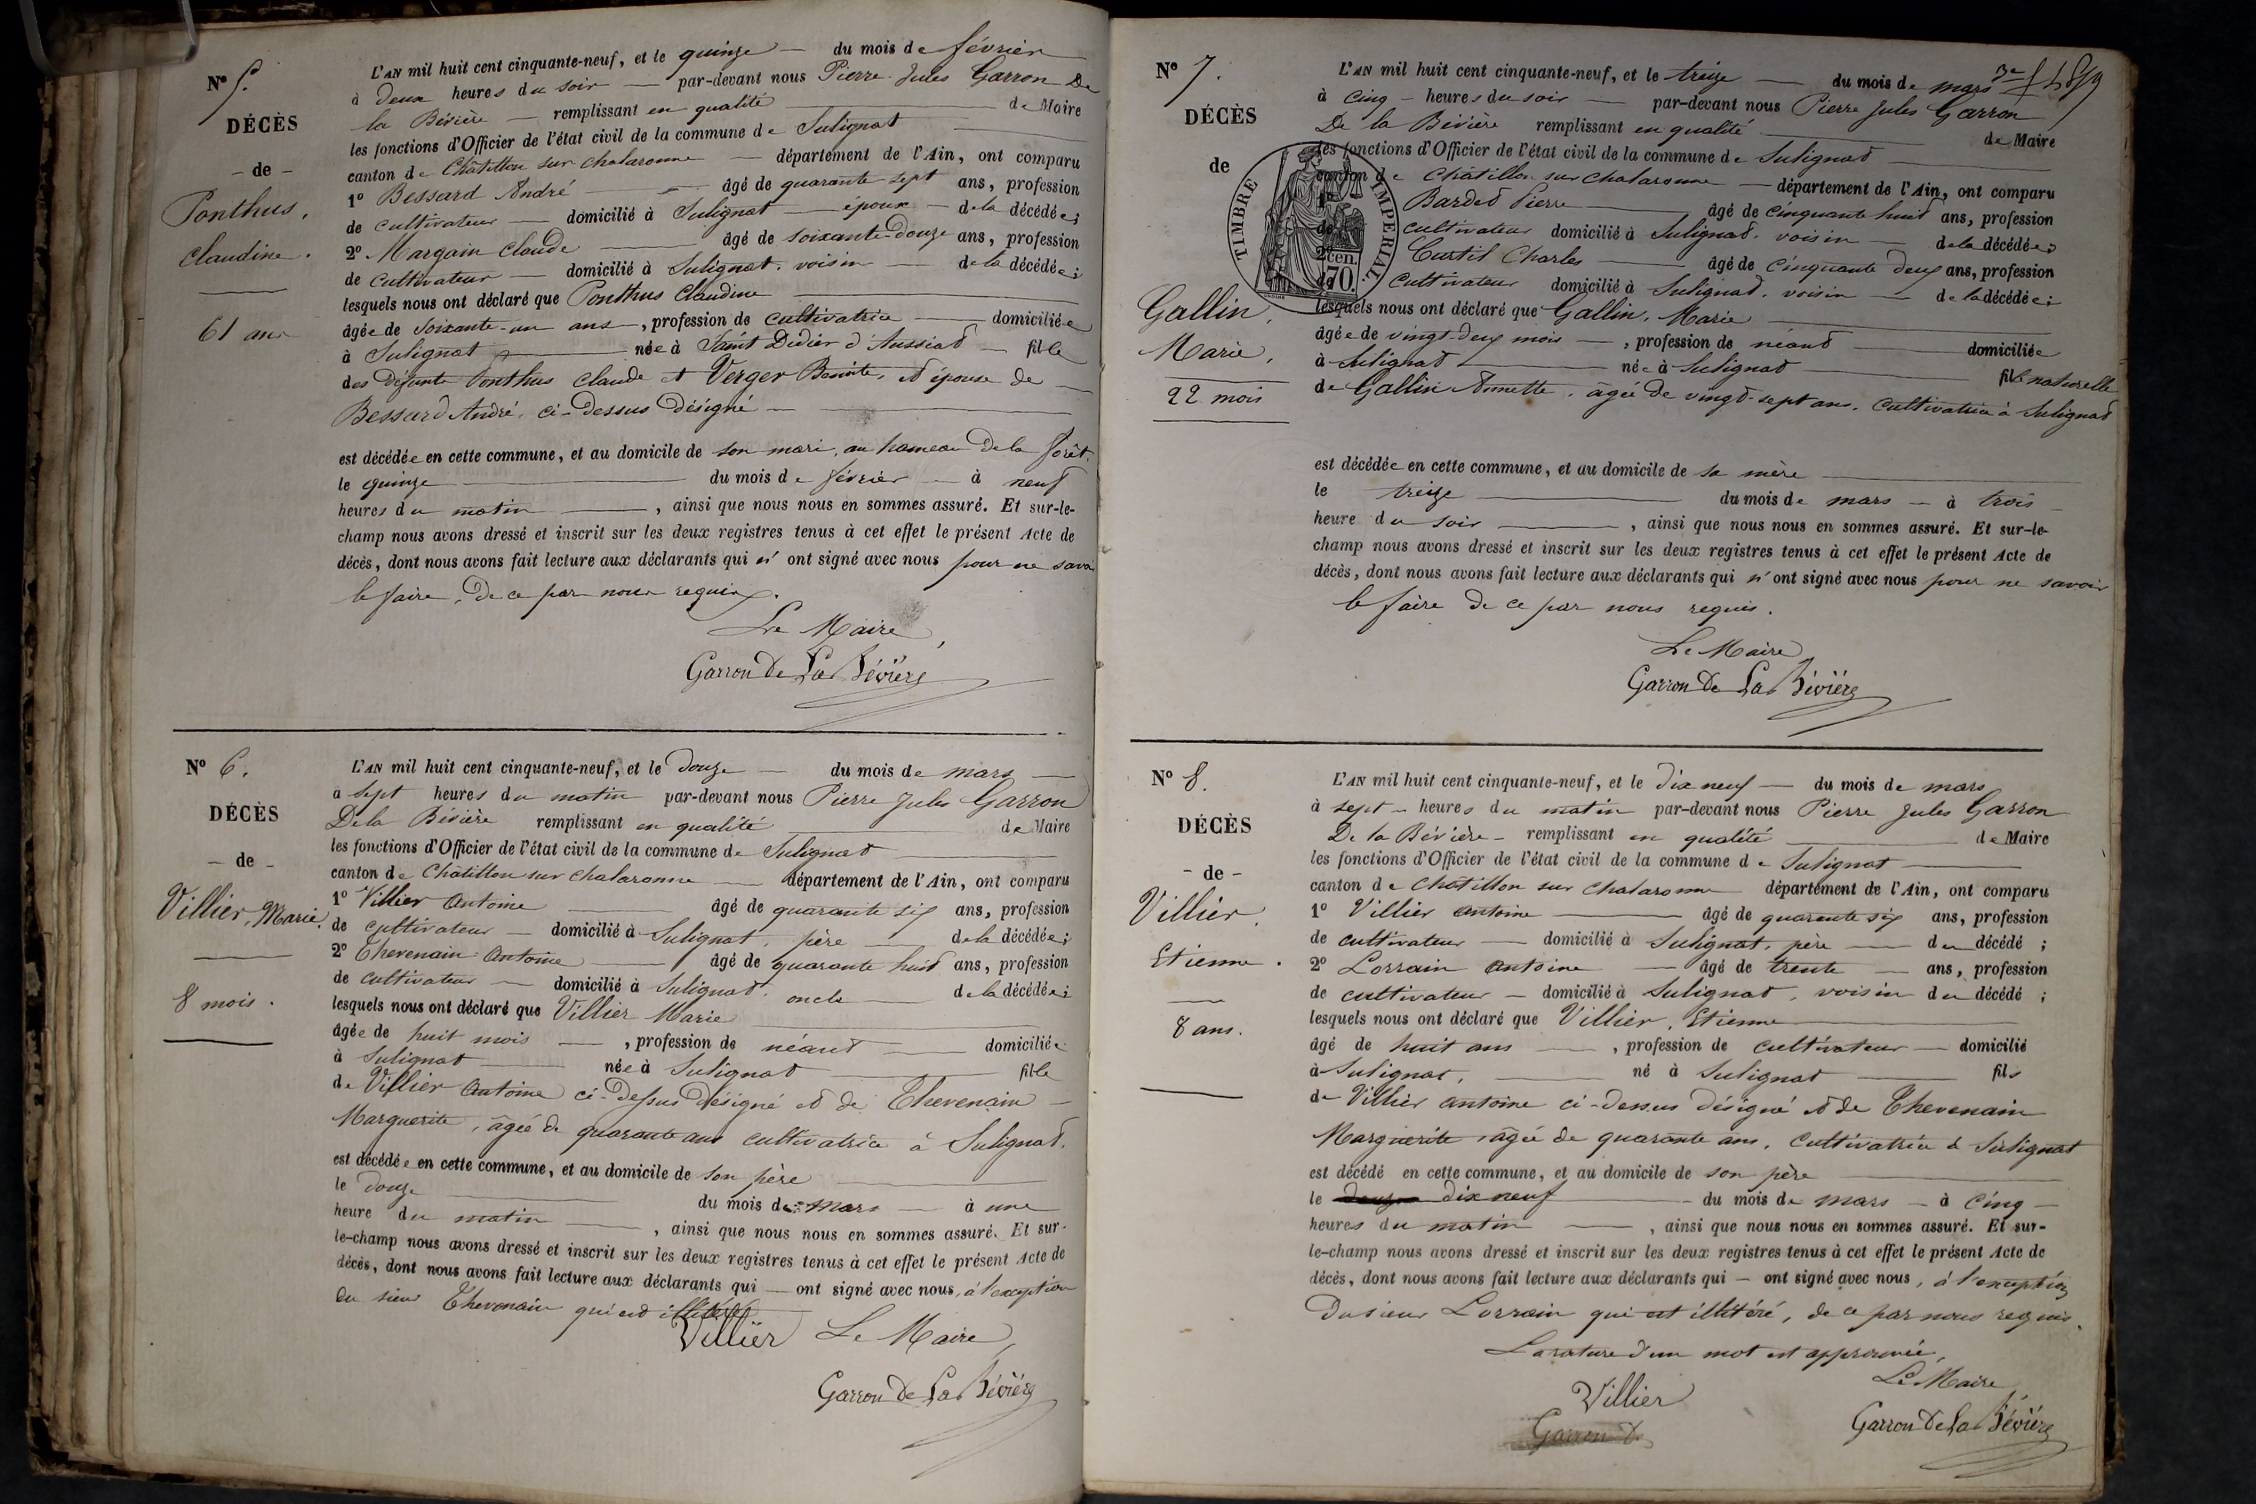 N° 5.
DÉCÈS
- de -
Ponthus,
Claudine.
61 ans
L'AN mil huit cent cinquante-neuf, et le quinze — du mois de février
à deux heures du soir — par-devant nous Pierre Jules Garron De
la Bévière — remplissant en qualité — de Maire
les fonctions d'Officier de l'état civil de la commune de Sulignat
canton de Châtillon sur Chalaronne — département de l'Ain, ont comparu
1° Bessard André — âgé de quarante-sept ans, profession
de cultivateur — domicilié à Sulignat — époux — de la décédée;
2° Margain Claude — âgé de soixante-douze ans, profession
de cultivateur — domicilié à Sulignat, voisin — de la décédée;
lesquels nous ont déclaré que Ponthus Claudine
âgée de soixante-un ans —, profession de cultivatrice — domiciliée
à Sulignat — née à Saint Didier d'Aussiat — fille
des défunts Ponthus Claude et Verger Benoite, et épouse de —
Bessard André, ci-dessus désigné —
est décédée en cette commune, et au domicile de son mari, au hameau de la forêt.
le quinze — du mois de février — à neuf
heures du matin —, ainsi que nous nous en sommes assuré. Et sur-le-
champ nous avons dressé et inscrit sur les deux registres tenus à cet effet le présent Acte de
décès, dont nous avons fait lecture aux déclarants qui n'ont signé avec nous pour ne savoir
le faire, de ce par nous requis.
Le Maire,
Garron De La Bévière
N° 6.
DÉCÈS
- de -
Villier, Marie.
8 mois.
L'AN mil huit cent cinquante-neuf, et le douze — du mois de mars —
à sept heures du matin par-devant nous Pierre Jules Garron
De la Bévière remplissant en qualité — de Maire
les fonctions d'Officier de l'état civil de la commune de Sulignat
canton de Châtillon sur Chalaronne — département de l'Ain, ont comparu
1° Villier Antoine — âgé de quarante six ans, profession
de cultivateur — domicilié à Sulignat, père — de la décédée;
2° Thevenain Antoine — âgé de quarante huit ans, profession
de cultivateur — domicilié à Sulignat, oncle — de la décédée;
lesquels nous ont déclaré que Villier Marie
âgée de huit mois —, profession de néant — domiciliée
à Sulignat — née à Sulignat — fille
de Villier Antoine ci-dessus désigné et de Thevenain —
Marguerite, âgée de quarante ans cultivatrice à Sulignat.
est décédée en cette commune, et au domicile de son père
le douze — du mois de mars — à une
heure du matin —, ainsi que nous nous en sommes assuré. Et sur-
le-champ nous avons dressé et inscrit sur les deux registres tenus à cet effet le présent Acte de
décès, dont nous avons fait lecture aux déclarants qui — ont signé avec nous, à l'exception
du sieur Thevenain qui est illitéré
Villier Le Maire,
Garron De La Bévière
3e f 1859
N° 7.
DÉCÈS
de
TIMBRE IMPERIAL
2 cen. 70.
Gallin,
Marie,
22 mois
L'AN mil huit cent cinquante-neuf, et le treize — du mois de mars
à cinq — heures du soir — par-devant nous Pierre Jules Garron
De la Bévière remplissant en qualité — de Maire
les fonctions d'Officier de l'état civil de la commune de Sulignat
canton de Châtillon sur Chalaronne — département de l'Ain, ont comparu
Bardet Pierre — âgé de cinquante huit ans, profession
de cultivateur domicilié à Sulignat, voisin — de la décédée;
2° Curtil Charles — âgé de cinquante deux ans, profession
de cultivateur domicilié à Sulignat, voisin — de la décédée;
lesquels nous ont déclaré que Gallin, Marie
âgée de vingt-deux mois —, profession de néant — domiciliée
à Sulignat — née à Sulignat — fille naturelle
de Gallin Annette, âgée de vingt-sept ans, cultivatrice à Sulignat
est décédée en cette commune, et au domicile de sa mère
le treize — du mois de mars — à trois
heure du soir —, ainsi que nous nous en sommes assuré. Et sur-le-
champ nous avons dressé et inscrit sur les deux registres tenus à cet effet le présent Acte de
décès, dont nous avons fait lecture aux déclarants qui n'ont signé avec nous pour ne savoir
le faire de ce par nous requis.
Le Maire
Garron De La Bévière
N° 8.
DÉCÈS
- de -
Villier,
Etienne.
8 ans.
L'AN mil huit cent cinquante-neuf, et le dix neuf — du mois de mars
à sept — heures du matin par-devant nous Pierre Jules Garron
De la Bévière — remplissant en qualité — de Maire
les fonctions d'Officier de l'état civil de la commune de Sulignat
canton de Châtillon sur Chalaronne département de l'Ain, ont comparu
1° Villier Antoine — âgé de quarante six ans, profession
de cultivateur — domicilié à Sulignat, père — du décédé;
2° Lorrain Antoine — âgé de trente — ans, profession
de cultivateur — domicilié à Sulignat, voisin du décédé;
lesquels nous ont déclaré que Villier, Etienne
âgé de huit ans —, profession de cultivateur — domicilié
à Sulignat, — né à Sulignat — fils
de Villier Antoine ci-dessus désigné et de Thevenain
Marguerite âgée de quarante ans, cultivatrice à Sulignat
est décédé en cette commune, et au domicile de son père
le douze dix neuf — du mois de mars — à cinq —
heures du matin —, ainsi que nous nous en sommes assuré. Et sur-
le-champ nous avons dressé et inscrit sur les deux registres tenus à cet effet le présent Acte de
décès, dont nous avons fait lecture aux déclarants qui — ont signé avec nous, à l'exception
du sieur Lorrain qui est illitéré, de ce par nous requis.
La rature d'un mot est approuvée,
Le Maire
Villier
Garron D
Garron De La Bévière